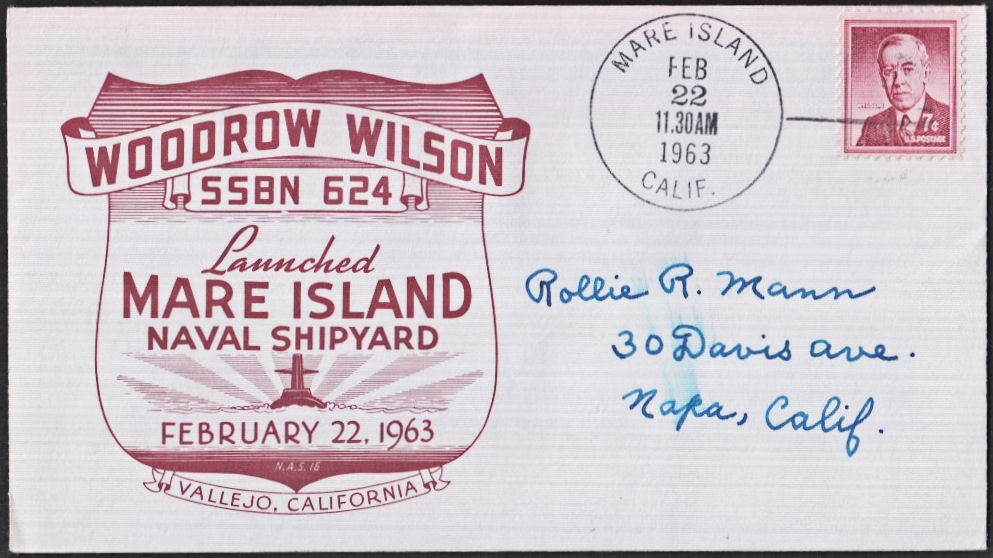 WOODROW WILSON
SSBN 624
Launched
MARE ISLAND
NAVAL SHIPYARD
FEBRUARY 22, 1963
N.A.S. 16
VALLEJO, CALIFORNIA
MARE ISLAND
FEB
22
11.30AM
1963
CALIF.
WILSON
7¢
U.S. POSTAGE
Rollie R. Mann
30 Davis ave.
Napa, Calif.